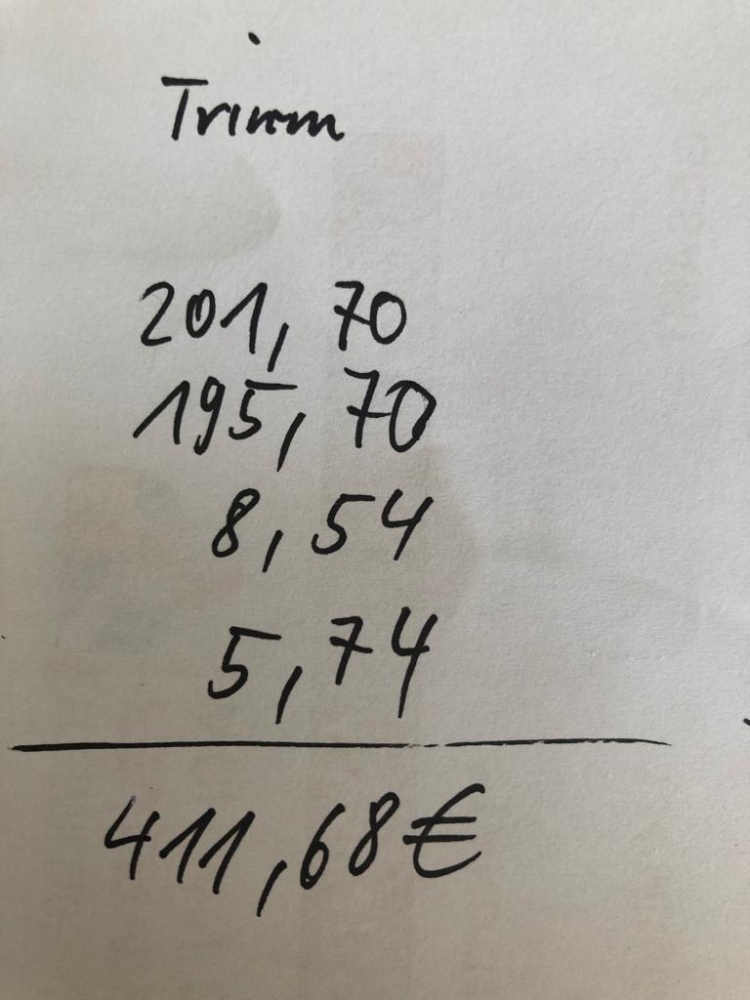 Trimm
201,70
195,70
8,54
5,74
411,68€